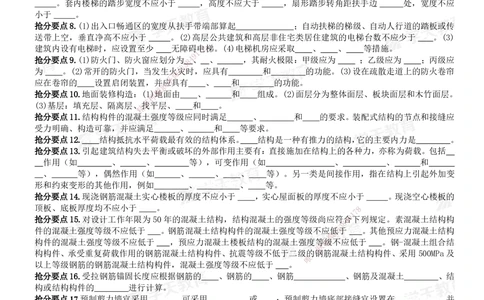 ____。套内楼梯的踏步宽度不应小于 ____，高度不应大于 ____，扇形踏步转角距扶手边 ____处，宽度不应
小于 ____。
抢分要点 8.(1)出入口畅通区的宽度从扶手带端部算起____________；自动扶梯的梯级、自动人行道的踏板或传
送带上空，垂直净高不应小于 ____。(2)高层公共建筑和高层非住宅类居住建筑的电梯台数不应少于 ____。(3)
建筑内设有电梯时，应设置至少 ____无障碍电梯。(4)电梯机房应采取____、____、____等措施。
抢分要点 9.(1)防火门、防火窗应划分为____、____、____，其耐火极限：甲级应为 ____；乙级应为 ____；丙级应
为 ____。(2)常开的防火门，当发生火灾时，应具有________和________的功能。(3)设在疏散走道上的防火卷帘
应在卷帘的____设置启闭装置，并应具有____、____和________的功能。
抢分要点 10.地面装修构造：(1)地面由____、____和____组成。(2)面层分为整体面层、板块面层和木竹面层。
(3)基层：填充层、隔离层、找平层、____和____。
抢分要点 11.结构构件的混凝土强度等级应同时满足________、________和____的要求。装配式结构的节点和接缝应
受力明确、构造可靠，并应满足______、______和____等要求。
抢分要点 12.____结构抵抗水平荷载最有效的结构体系。____结构是一种有推力的结构,它的主要内力是______。
抢分要点 13.引起建筑结构失去平衡或破坏的外部作用主要有：直接施加在结构上的各种力，亦称为荷载。包括__
____作用（如________、________、________等），可变作用（如____________、________、________、________和____
____、________等），偶然作用（如________、________、________等）。另一类是间接作用，指在结构上引起外加变
形和约束变形的其他作用，例如________、________、________等。
抢分要点 14.现浇钢筋混凝土实心楼板的厚度不应小于 ____，实心屋面板的厚度不应小于 ____。现浇空心楼板的
顶板、底板厚度均不应小于 ____。
抢分要点 15.对设计工作年限为 50 年的混凝土结构，结构混凝土的强度等级尚应符合下列规定。素混凝土结构构
件的混凝土强度等级不应低于 ____。钢筋混凝土结构构件的混凝土强度等级不应低于 ____。其他预应力混凝土结构
构件的混凝土强度等级不应低于 ____，预应力混凝土楼板结构的混凝土强度等级不应低于 ____。钢-混凝土组合结
构构件、承受重复荷载作用的钢筋混凝土结构构件、抗震等级不低于二级的钢筋混凝土结构构件、采用 500MPa 及
以上等级钢筋的钢筋混凝土结构构件，混凝土强度等级不应低于 ____。
抢分要点 16.受拉钢筋锚固长度应根据钢筋的____、钢筋的________、钢筋____________、钢筋及混凝土______、结
构或结构构件的________进行计算。